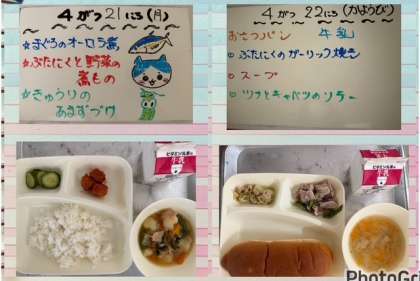 4がつ21にち(月)
☆まぐろのオーロラ煮
☆ぶたにくと野菜の
煮もの
☆きゅうりの
あまずづけ
4がつ 22にち(かようび)
おさつパン 牛乳
ぶたにくのガーリック焼き
スープ
ツナとキャベツのソテー
牛乳
牛乳
PhotoGri